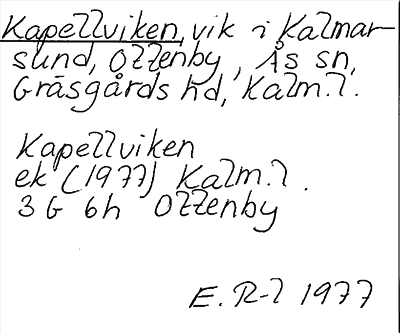 Kapellviken, vik i Kalmar-
sund, Ottenby, Ås sn,
Gräsgårds hd, Kalm.l.
Kapellviken
ek (1977) Kalm.l.
3 G 6h Ottenby
E. R-l 1977